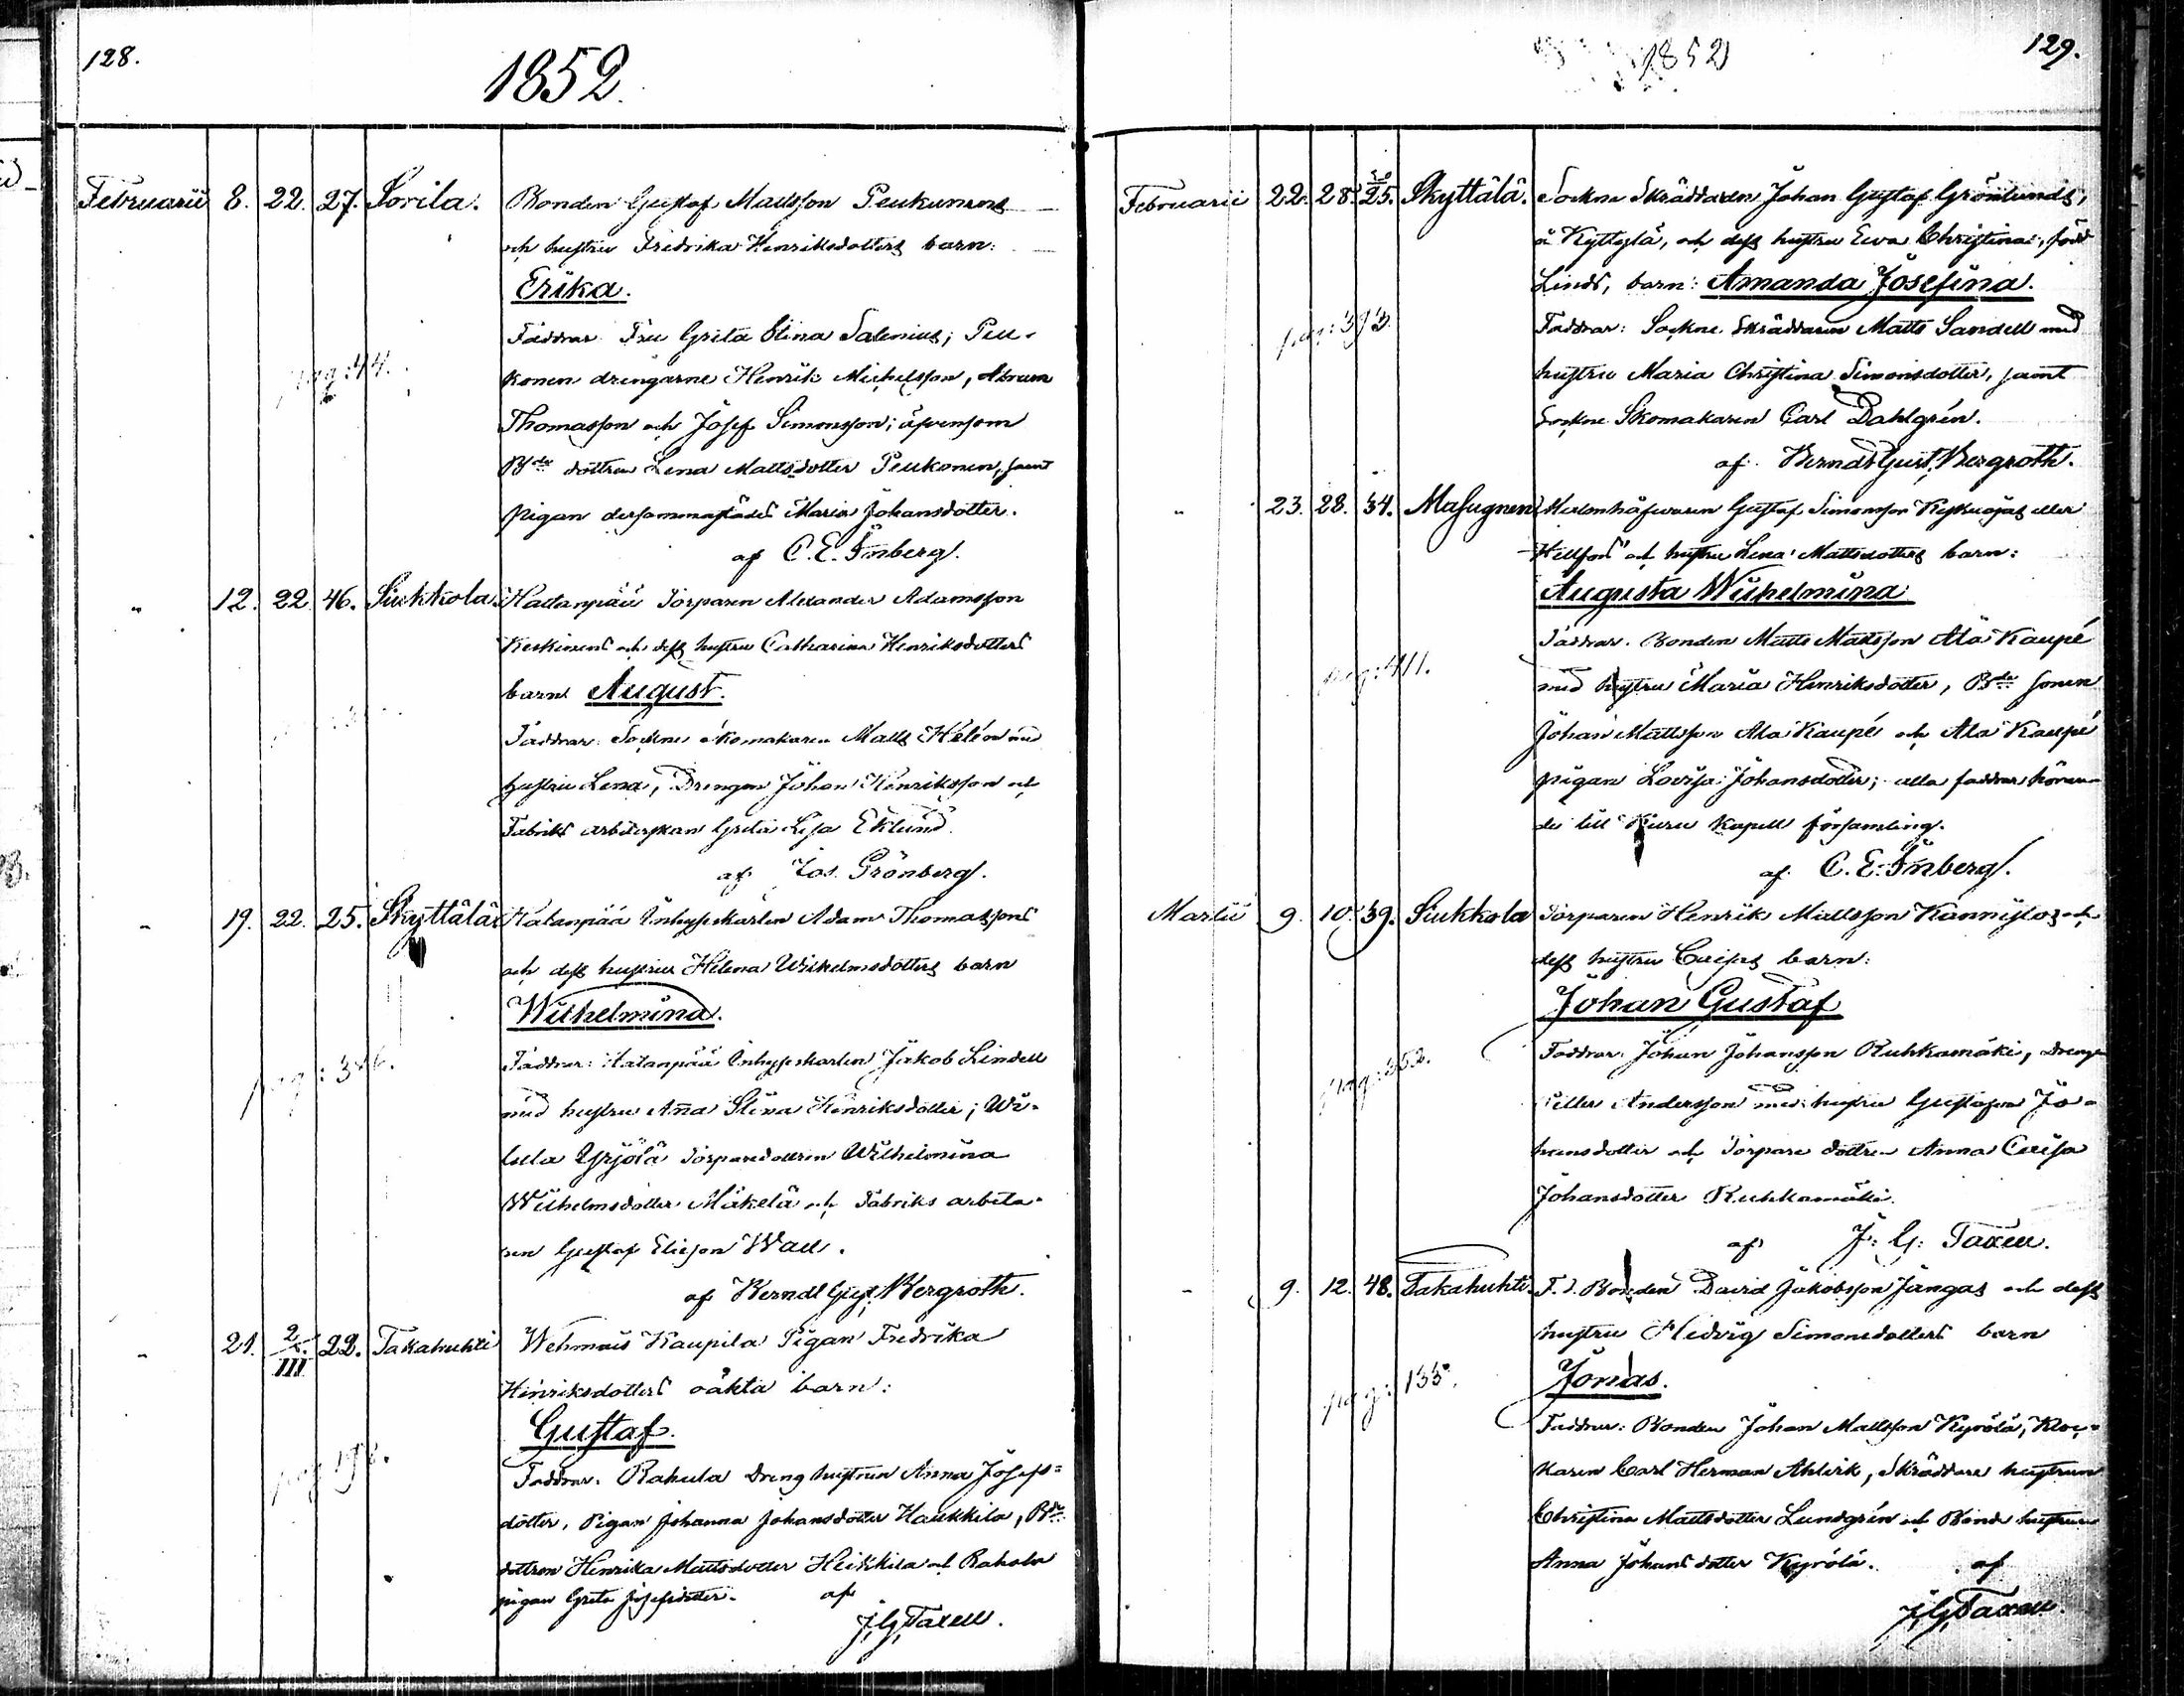 128.
1852.
Februarii 8. 22. 27. Sorila. Bonden Gustaf Mattsson Peukunens
och hustru Fredrika Henriksdotters barn:
Erika.
Faddrar Fru Greta Stina Salenius; Peu-
konen drengarne Henrik Michelsson, Abram
Thomasson och Josef Simonsson; äfvensom
Bde dottren Lena Mattsdotter Peukonen, samt
pag: 44.
pigan dersammastädes Maria Johansdotter.
af C. E. Imberg.
" 12. 22. 46. Siukkola. Hatanpää Torparen Alexander Adamsson
Keskinens och dess hustru Catharina Henriksdotters
barn August.
Faddrar: Sockne skomakaren Matts Helén med
hustru Lena, Drengen Johan Henriksson och
Fabriks arbeterskan Greta Lisa Eklund.
af Jos. Grönberg.
" 19. 22. 25. Skyttälä. Hatanpää Inhyseskarlen Adam Thomassons
och dess hustru Helena Wilhelmsdotters barn
Wilhelmina.
Faddrar: Hatanpää Inhyseskarlen Jakob Lindell
med hustru Anna Stina Henriksdotter; Wi-
lula Yrjölä Torparedottren Wilhelmina
Wilhelmsdotter Mäkelä och Fabriks arbeta-
ren Gustaf Eliasson Wall.
af Berndt Gust. Bergroth.
" 21. 2/III 22. Takahuhti Wehmais Kaupila Pigan Fredrika
Henriksdotters oäkta barn:
Gustaf.
Faddrar. Rahula Dreng hustrun Anna Josefs-
dotter, Pigan Johanna Johansdotter Haukkila, Bde
dottren Henrika Mattsdotter Heikkila och Rahola
pigan Greta Josefsdotter. af
J. G. Taxell.
1852
129.
Februarii 22. 28. 25. Skyttälä. Sockne Skräddaren Johan Gustaf Grönlunds,
å Kyttylä, och dess hustru Ewa Christinas, född
Linds, barn: Amanda Josefina.
pag: 393.
Faddrar: Sockne Skräddaren Matts Sandell med
hustru Maria Christina Simonsdotter, samt
Sockne Skomakaren Carl Dahlgrén.
af Berndt Gust. Bergroth.
" 23. 28. 34. Masugnen Gustaf Simonsson eller
Hellfors och hustru Lena Mattsdotters barn:
Augusta Wilhelmina
Faddrar. Bonden Matts Mattsson Ala Kaupé
pag: 411.
med hustru Maria Henriksdotter, Bde sonen
Johan Mattsson Ala Kaupé och Ala Kaupé
pigan Lovisa Johansdotter; alla faddrar höran-
de till Kuru Kapell församling.
af C. E. Imberg.
Martii 9. 10. 39. Siukkola Torparen Henrik Mattsson Kannistos och
dess hustru Caisas barn:
Johan Gustaf
Faddrar. Johan Johansson Ruhkamäki, Drengen
pag: 352.
Andersson med hustru Gustafva Jo-
hansdotter och Torpare dottren Anna Caisa
Johansdotter Ruhkamäki.
af J. G. Taxell.
" 9. 12. 48. Takahuhti. F. d. Bonden David Jakobsson Jangas och dess
hustru Hedvig Simonsdotters barn
Jonas.
pag: 133.
Faddrar: Bonden Johan Mattsson Kyrölä, Kloc-
karen Carl Herman Ahlvik, Skräddare hustrun
Christina Mattsdotter Lundgrén och Bonde hustrun
Anna Johans dotter Kyrölä. af
J. G. Taxell.